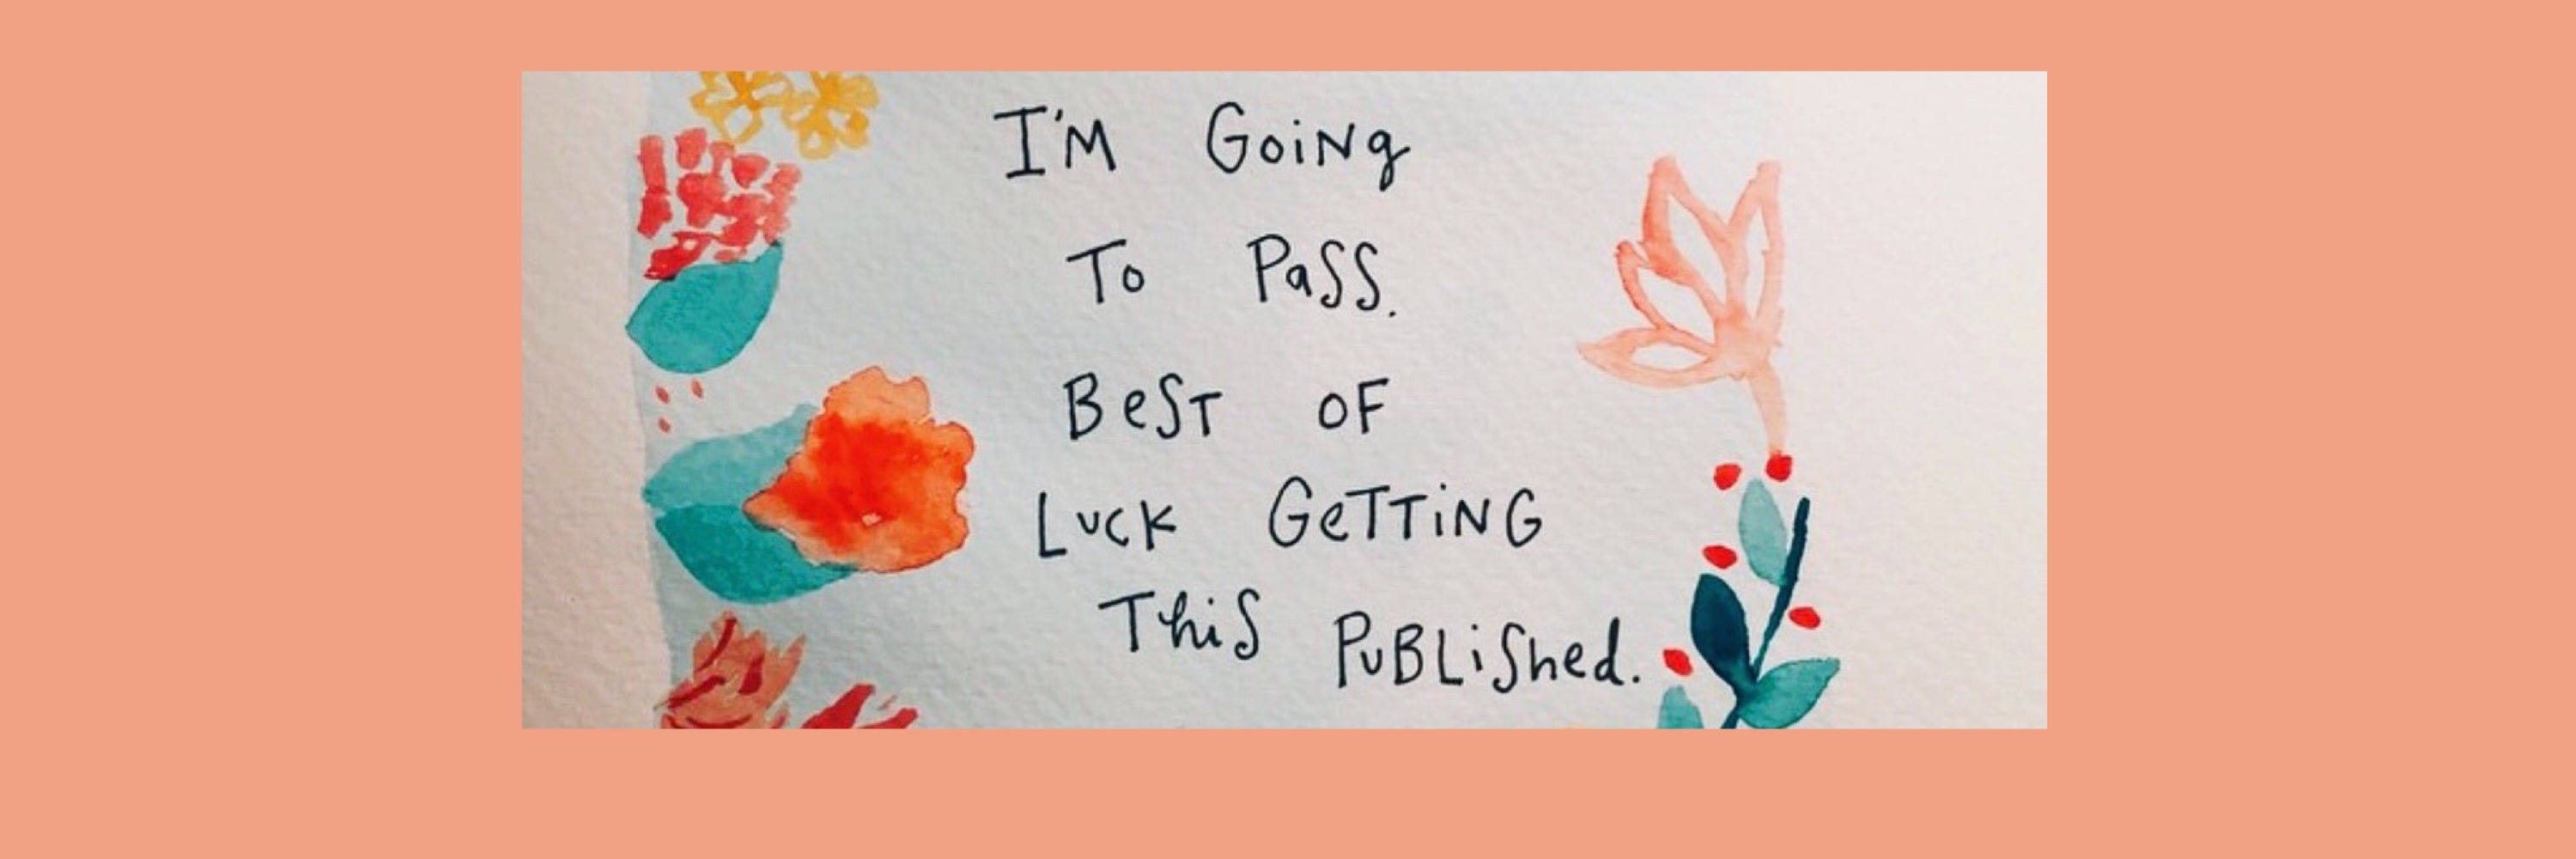 I'M GoiNg
To PaSS.
BeST oF
LucK GeTTiNG
ThiS PuBLiShed.